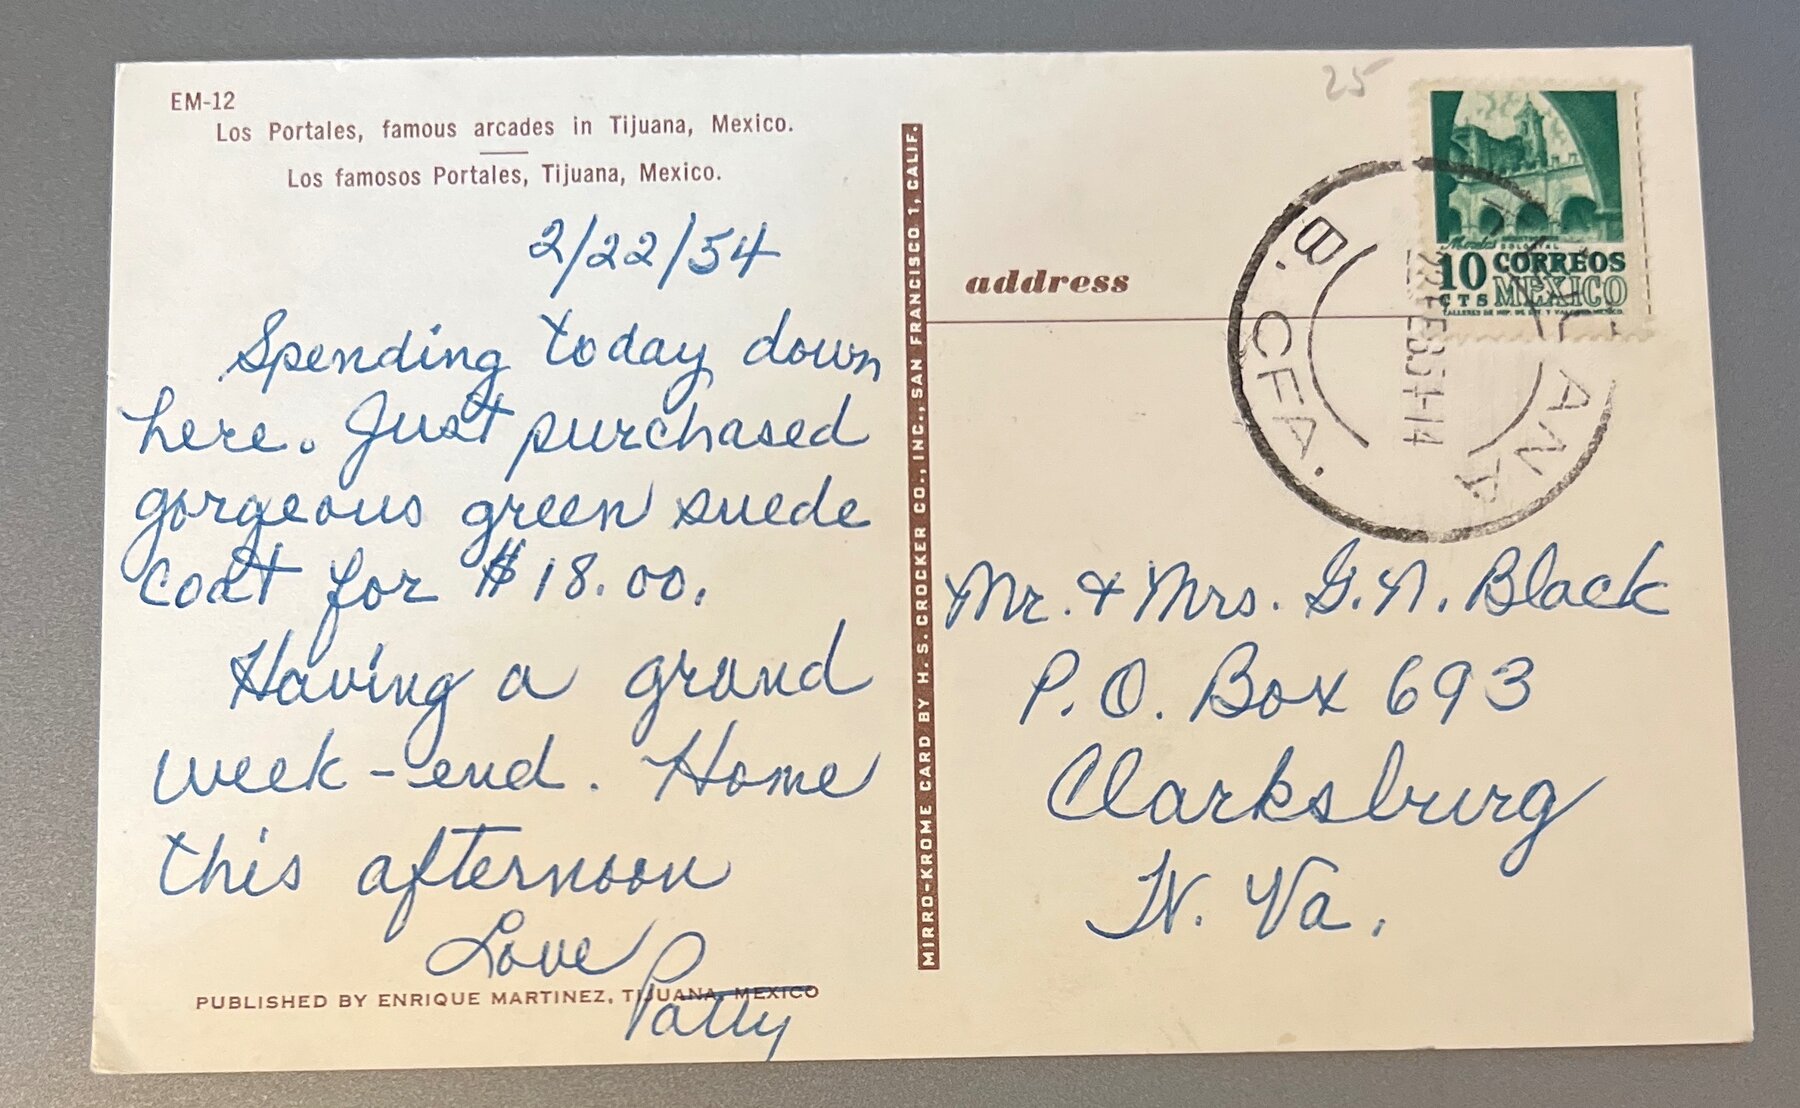 EM-12
Los Portales, famous arcades in Tijuana, Mexico.
Los famosos Portales, Tijuana, Mexico.
2/22/54
Spending today down
here. Just purchased
gorgeous green suede
coat for $18.00.
Having a grand
week-end. Home
this afternoon
Love
Patty
PUBLISHED BY ENRIQUE MARTINEZ, TIJUANA, MEXICO
MIRRO-KROME CARD BY H. S. CROCKER CO., INC., SAN FRANCISCO 1, CALIF.
25
address
10 CORREOS
CTS MEXICO
TIJUANA
B. CFA.
Mr. & Mrs. G. N. Black
P. O. Box 693
Clarksburg
W. Va.